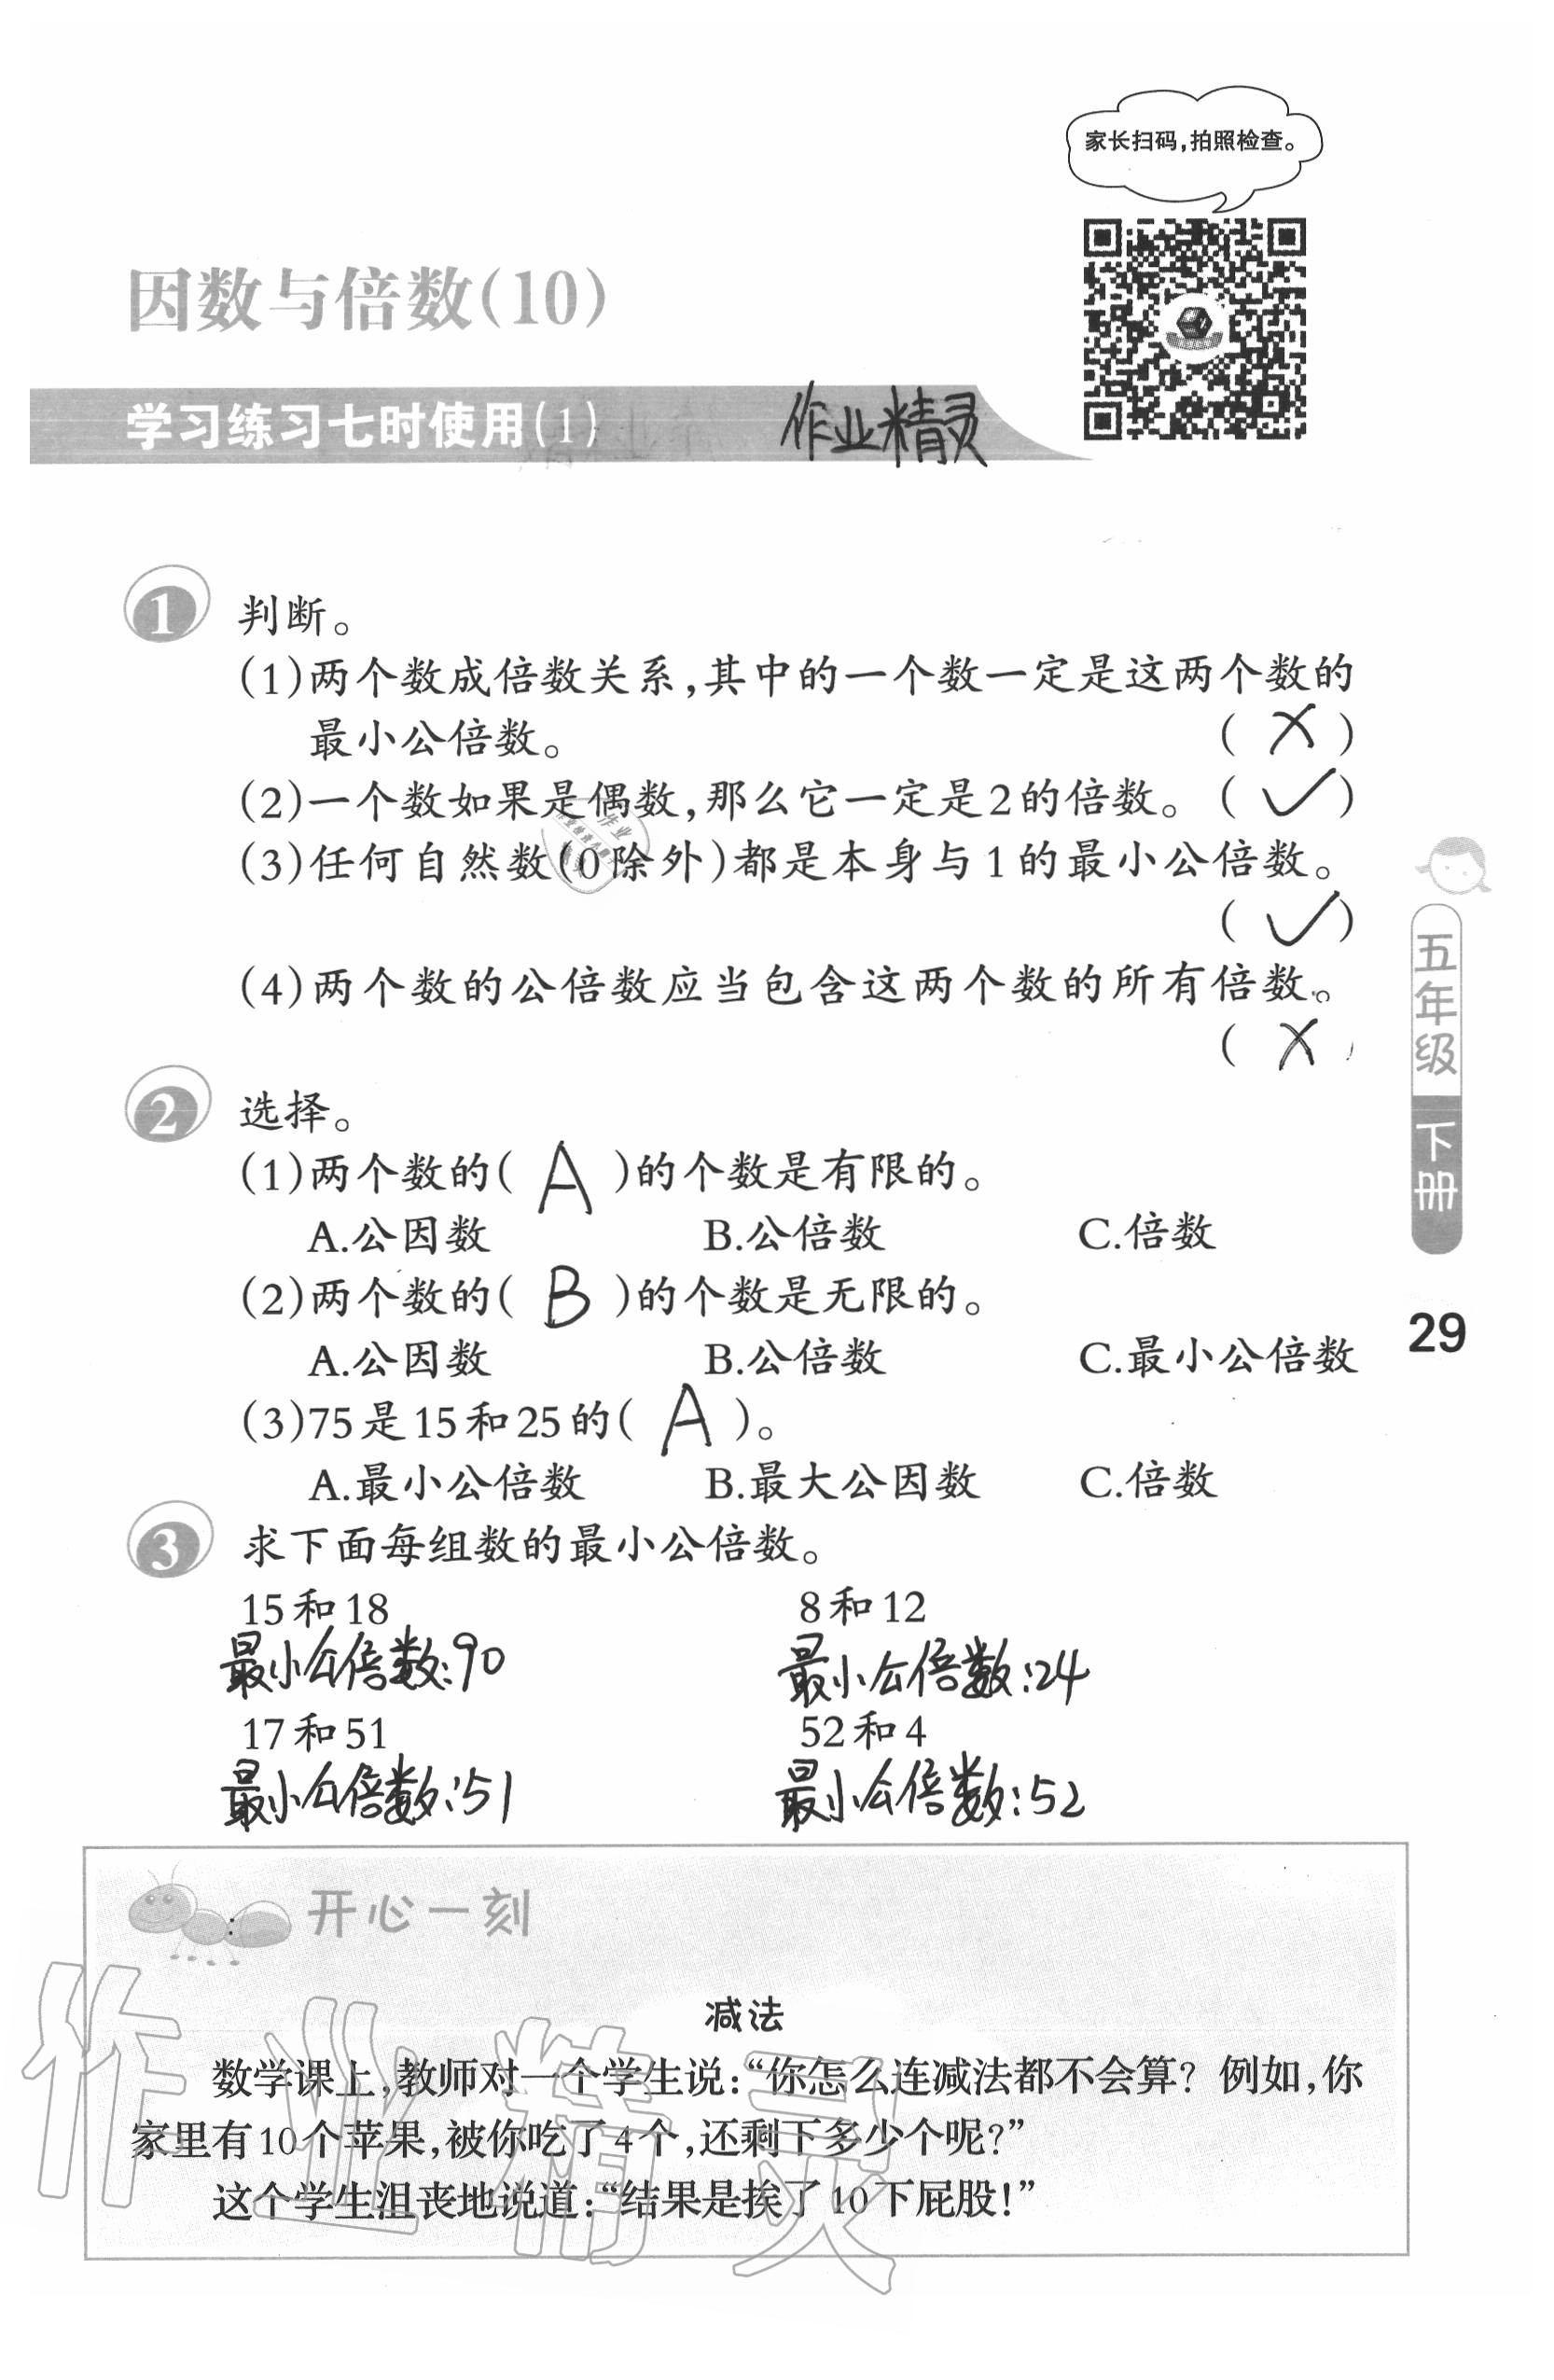 家长扫码,拍照检查。
因数与倍数(10)
学习练习七时使用(1)
作业精灵
1 判断。
(1)两个数成倍数关系,其中的一个数一定是这两个数的
最小公倍数。 ( X )
(2)一个数如果是偶数,那么它一定是2的倍数。 ( ✓ )
(3)任何自然数(0除外)都是本身与1的最小公倍数。
( ✓ )
(4)两个数的公倍数应当包含这两个数的所有倍数。
( X )
2 选择。
(1)两个数的( A )的个数是有限的。
A.公因数 B.公倍数 C.倍数
(2)两个数的( B )的个数是无限的。
A.公因数 B.公倍数 C.最小公倍数
(3)75是15和25的( A )。
A.最小公倍数 B.最大公因数 C.倍数
3 求下面每组数的最小公倍数。
15和18 8和12
最小公倍数:90 最小公倍数:24
17和51 52和4
最小公倍数:51 最小公倍数:52
五年级 下册
29
开心一刻
减法
数学课上,教师对一个学生说:“你怎么连减法都不会算? 例如,你
家里有10个苹果,被你吃了4个,还剩下多少个呢?”
这个学生沮丧地说道:“结果是挨了10下屁股!”
作业精灵